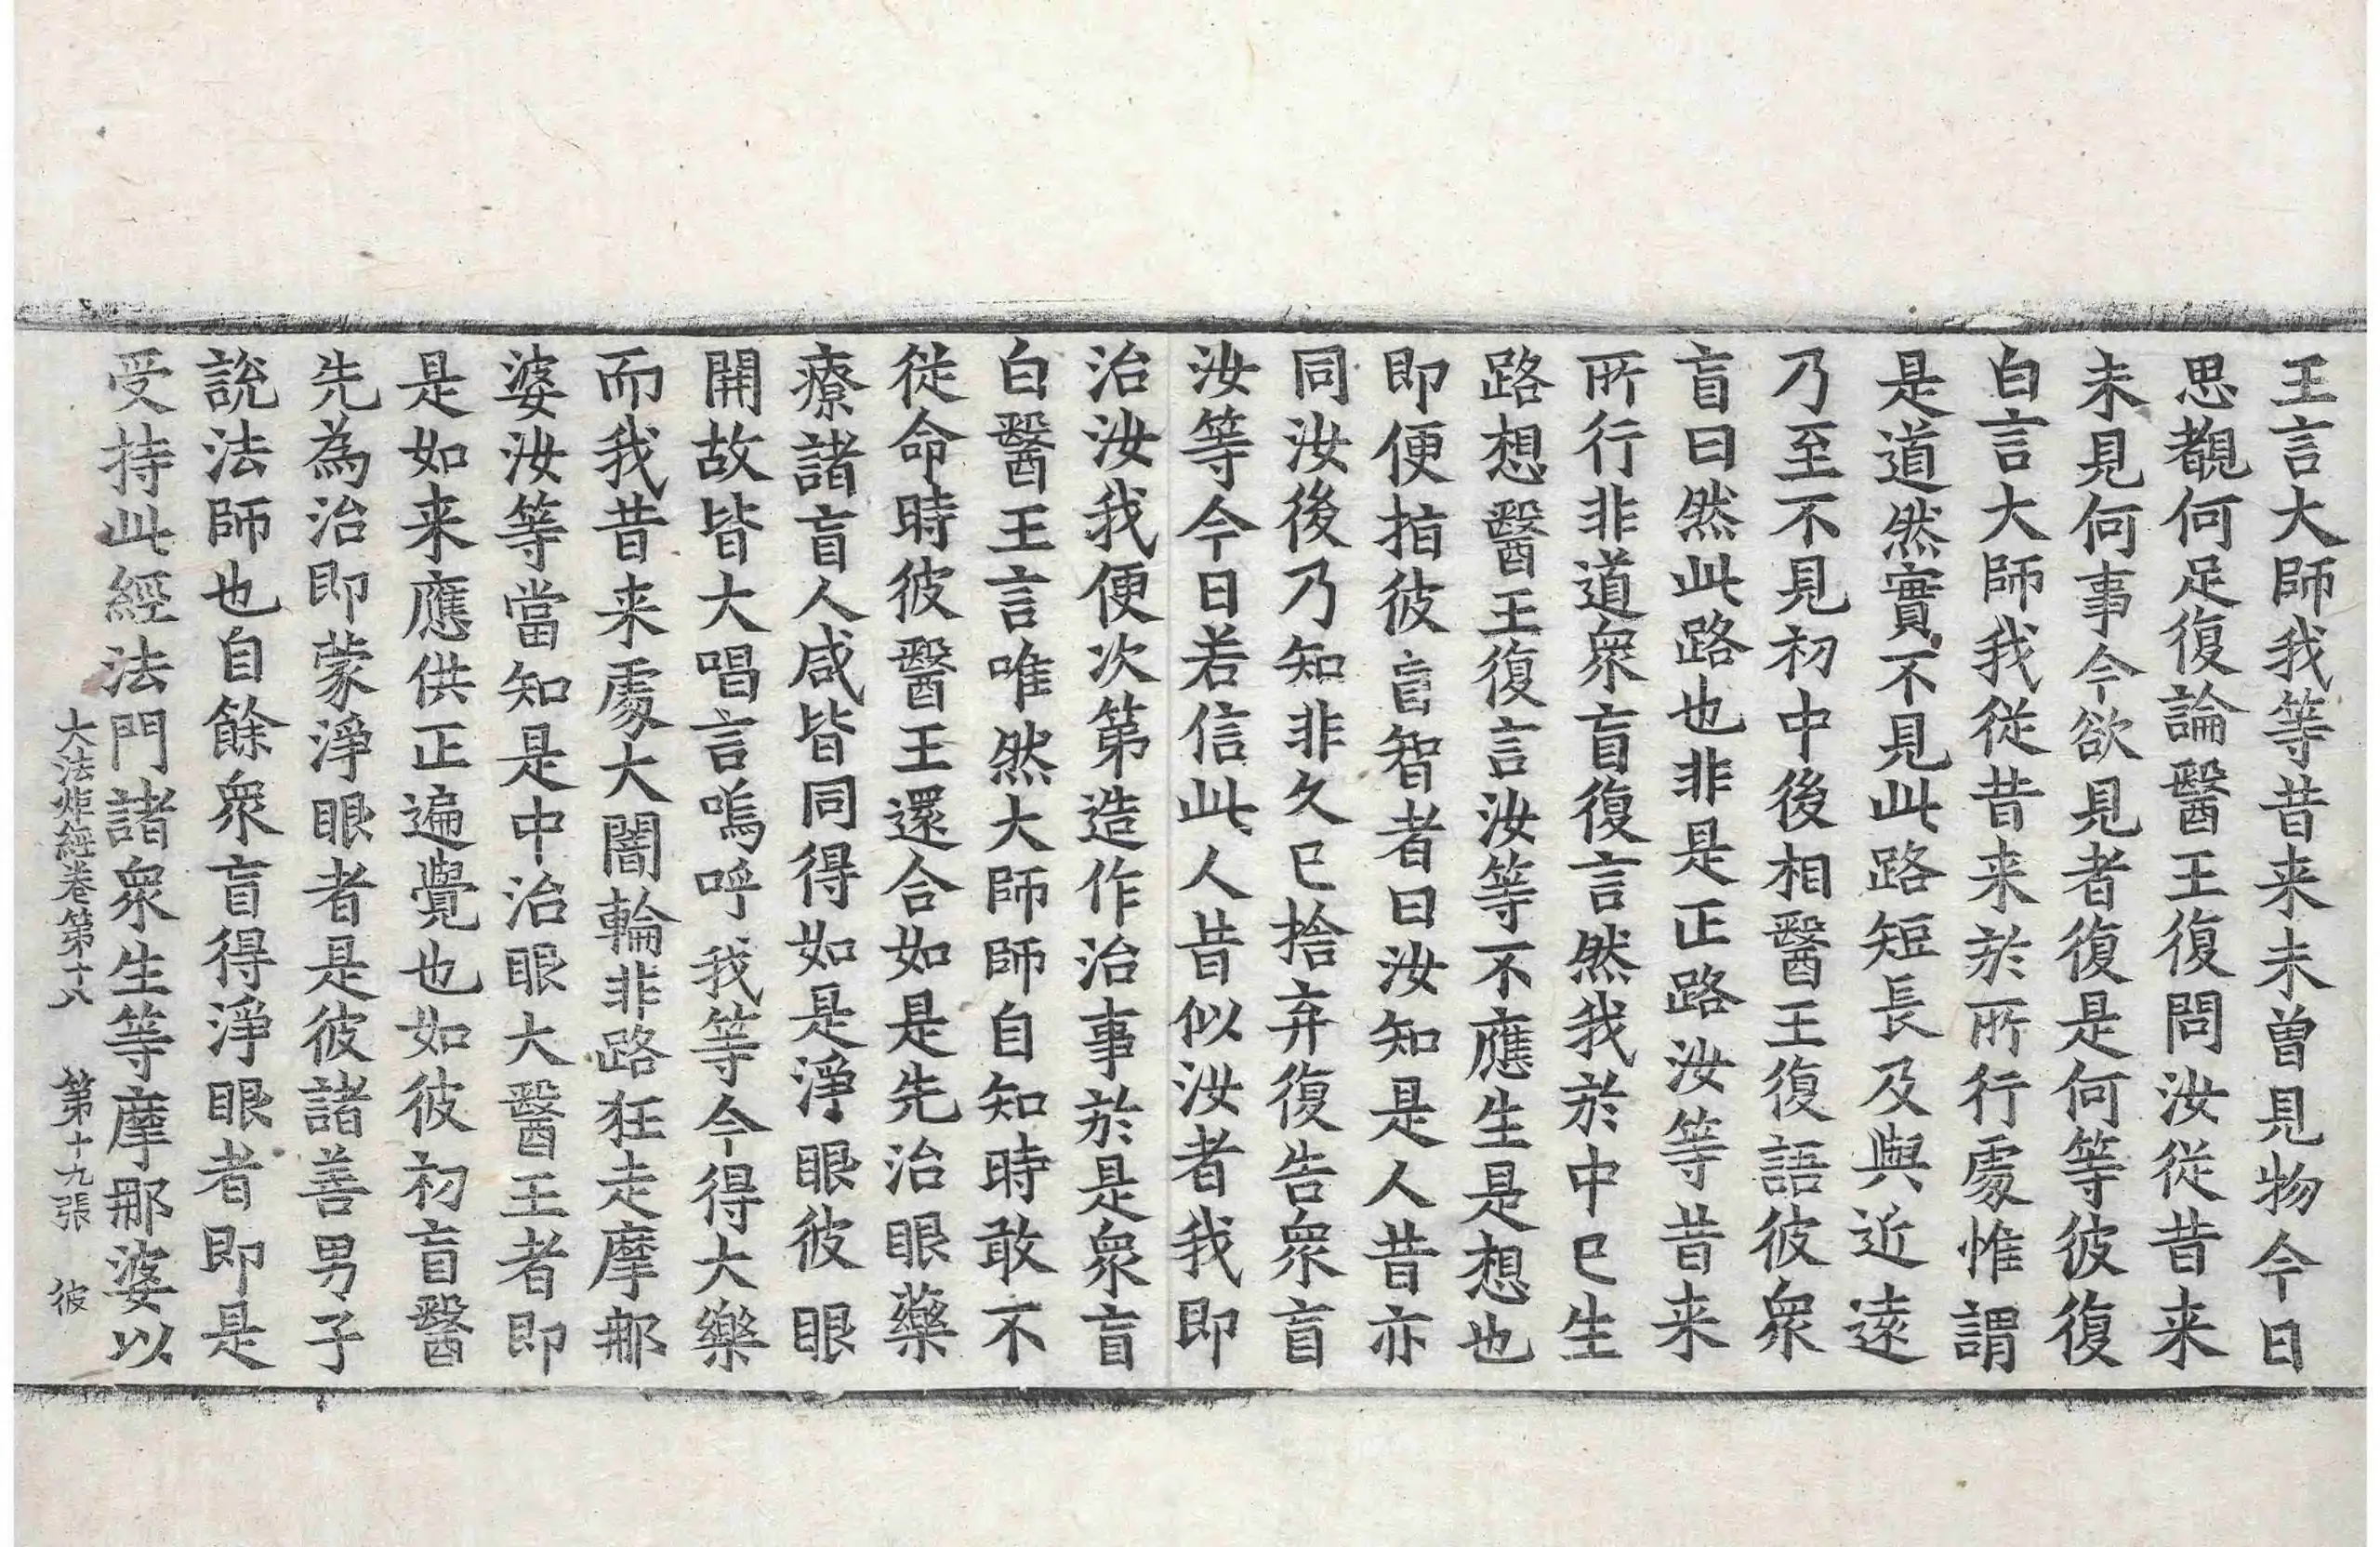 王言大師我等昔来未曽見物今日
思覩何足復論醫王復問汝從昔来
未見何事今欲見者復是何等彼復
白言大師我從昔来於所行處惟謂
是道然實不見此路短長及與近遠
乃至不見初中後相醫王復語彼衆
盲曰然此路也非是正路汝等昔来
所行非道衆盲復言然我於中已生
路想醫王復言汝等不應生是想也
即便指彼盲智者曰汝知是人昔亦
同汝後乃知非久已捨弃復告衆盲
汝等今日若信此人昔似汝者我即
治汝我便次第造作治事於是衆盲
白醫王言唯然大師師自知時敢不
從命時彼醫王還合如是先治眼藥
療諸盲人咸皆同得如是淨眼彼眼
開故皆大唱言嗚呼我等今得大樂
而我昔来處大闇輪非路狂走摩那
婆汝等當知是中治眼大醫王者即
是如来應供正遍覺也如彼初盲醫
先為治即蒙淨眼者是彼諸善男子
說法師也自餘衆盲得淨眼者即是
受持此經法門諸衆生等摩那婆以
大法炬經卷第十八 第十九張 彼